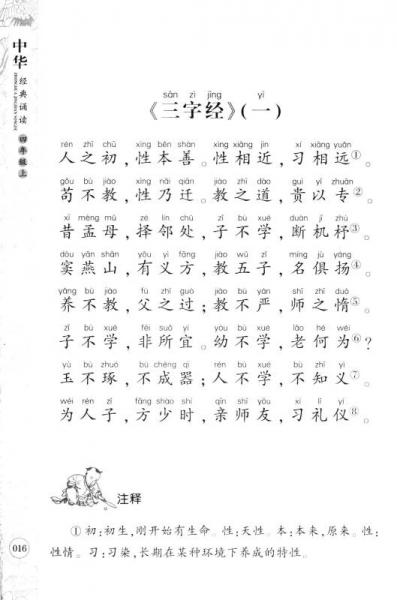 中华
经典诵读
ZHONGHUA JINGDIAN SONGDU
四年级上
sān zì jīng yī
《三字经》(一)
rén zhī chū xìng běn shàn xìng xiāng jìn xí xiāng yuǎn
人之初,性本善。性相近,习相远①。
gǒu bú jiào xìng nǎi qiān jiào zhī dào guì yǐ zhuān
苟不教,性乃迁。教之道,贵以专②。
xī mèng mǔ zé lín chǔ zǐ bù xué duàn jī zhù
昔孟母,择邻处,子不学,断机杼③。
dòu yān shān yǒu yì fāng jiào wǔ zǐ míng jù yáng
窦燕山,有义方,教五子,名俱扬④。
yǎng bú jiào fù zhī guò jiào bù yán shī zhī duò
养不教,父之过;教不严,师之惰⑤。
zǐ bù xué fēi suǒ yí yòu bù xué lǎo hé wéi
子不学,非所宜。幼不学,老何为⑥?
yù bù zhuó bù chéng qì rén bù xué bù zhī yì
玉不琢,不成器;人不学,不知义⑦。
wéi rén zǐ fāng shào shí qīn shī yǒu xí lǐ yí
为人子,方少时,亲师友,习礼仪⑧。
注释
①初:初生,刚开始有生命。性:天性。本:本来,原来。性:
性情。习:习染,长期在某种环境下养成的特性。
016